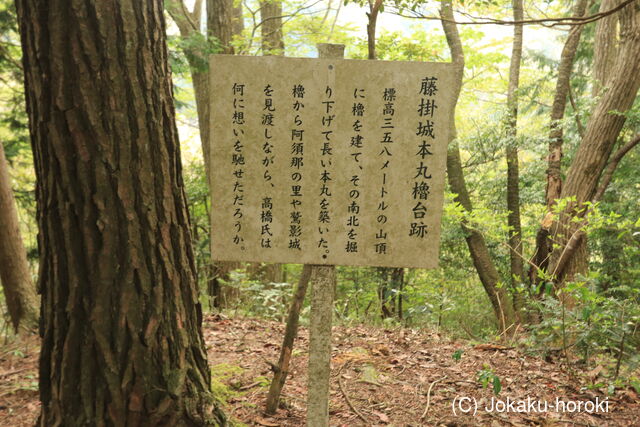 藤掛城本丸櫓台跡
標高三五八メートルの山頂
に櫓を建て、その南北を掘
り下げて長い本丸を築いた。
櫓から阿須那の里や鷲影城
を見渡しながら、高橋氏は
何に想いを馳せただろうか。
(C) Jokaku-horoki